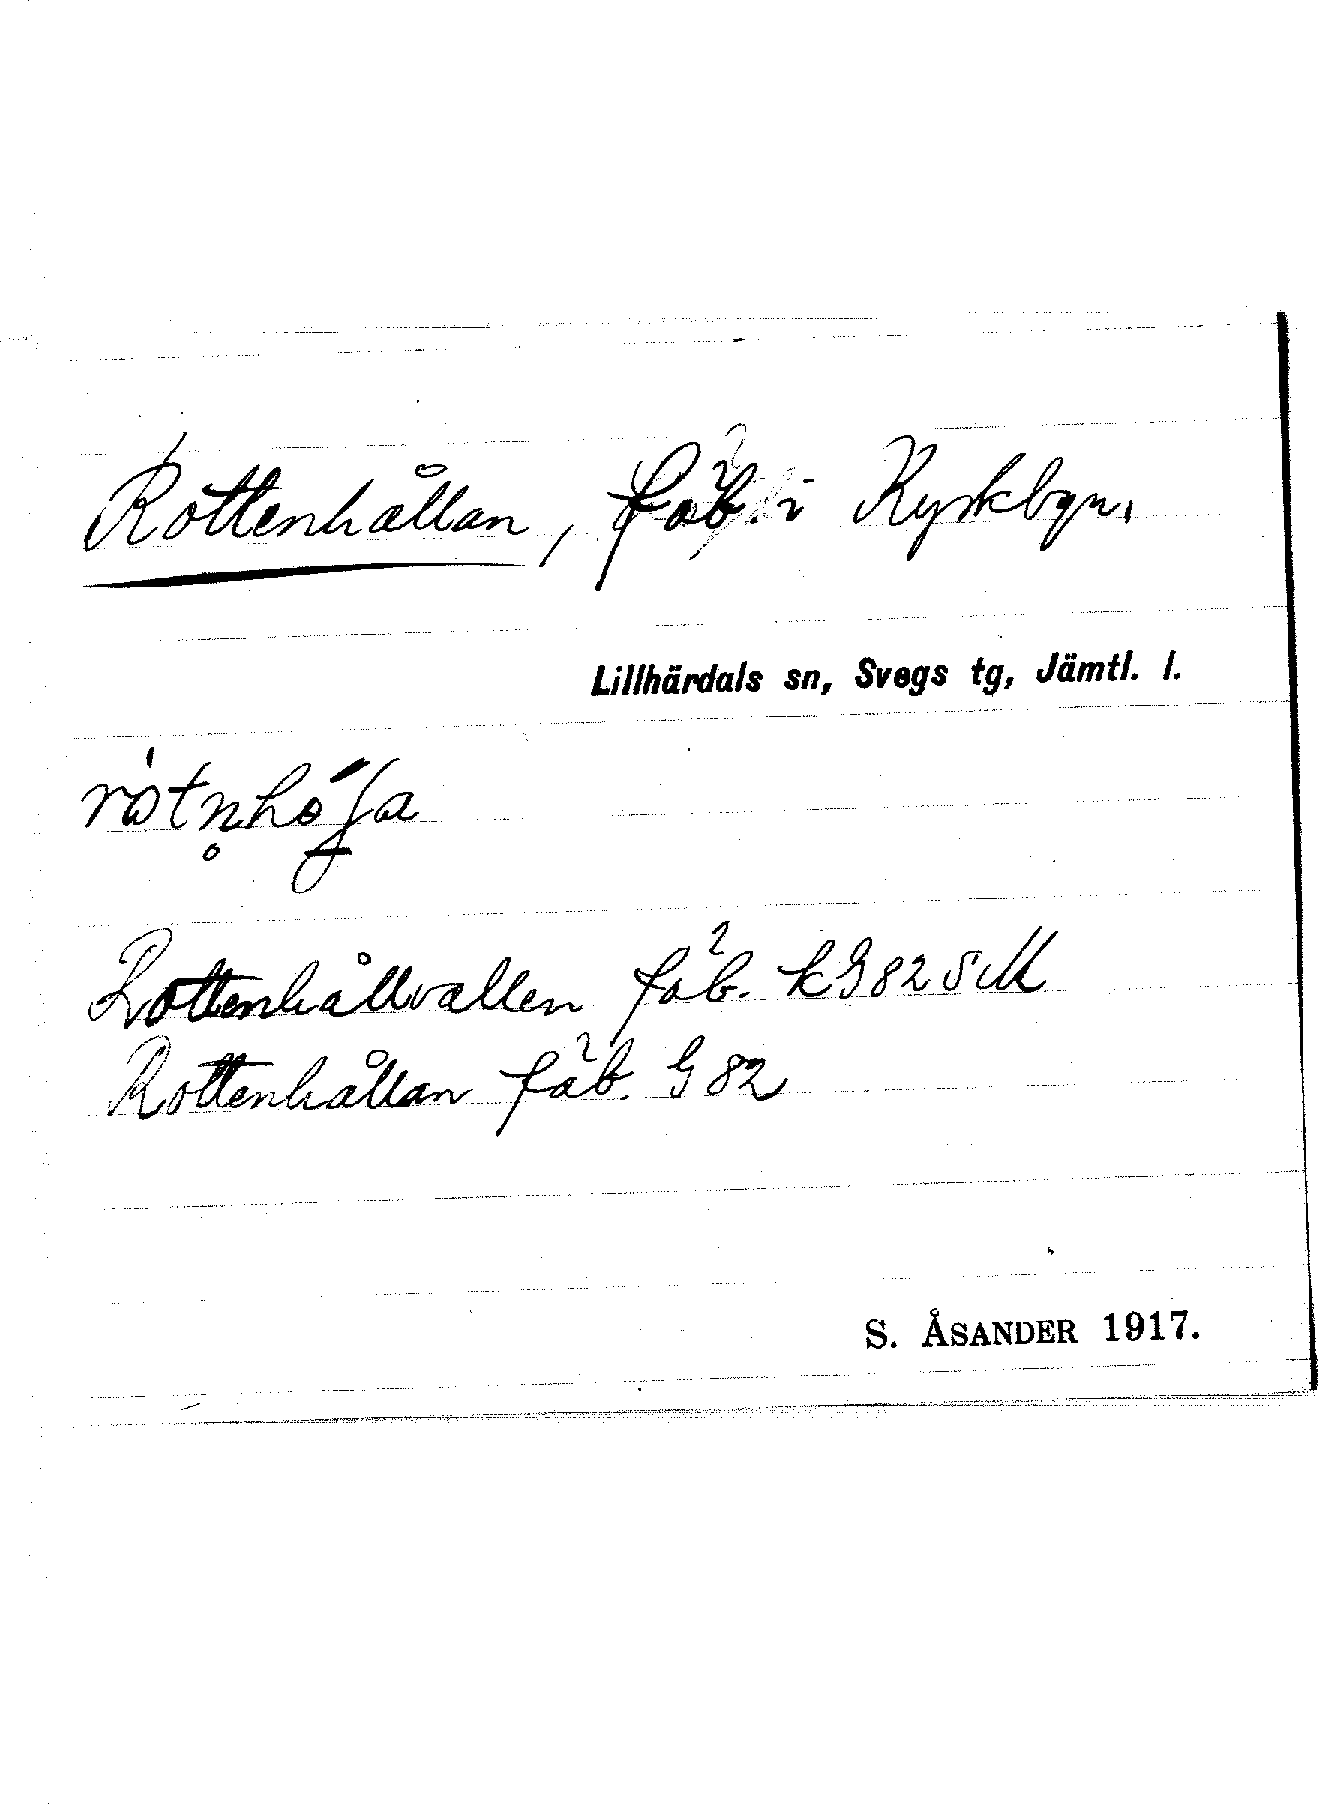 Rottenhållan, fäb. i Kyrkbyn.
Lillhärdals sn, Svegs tg, Jämtl. l.
Rottenhållvallen fäb. kG82SM
Rottenhållan fäb. G82
S. ÅSANDER 1917.